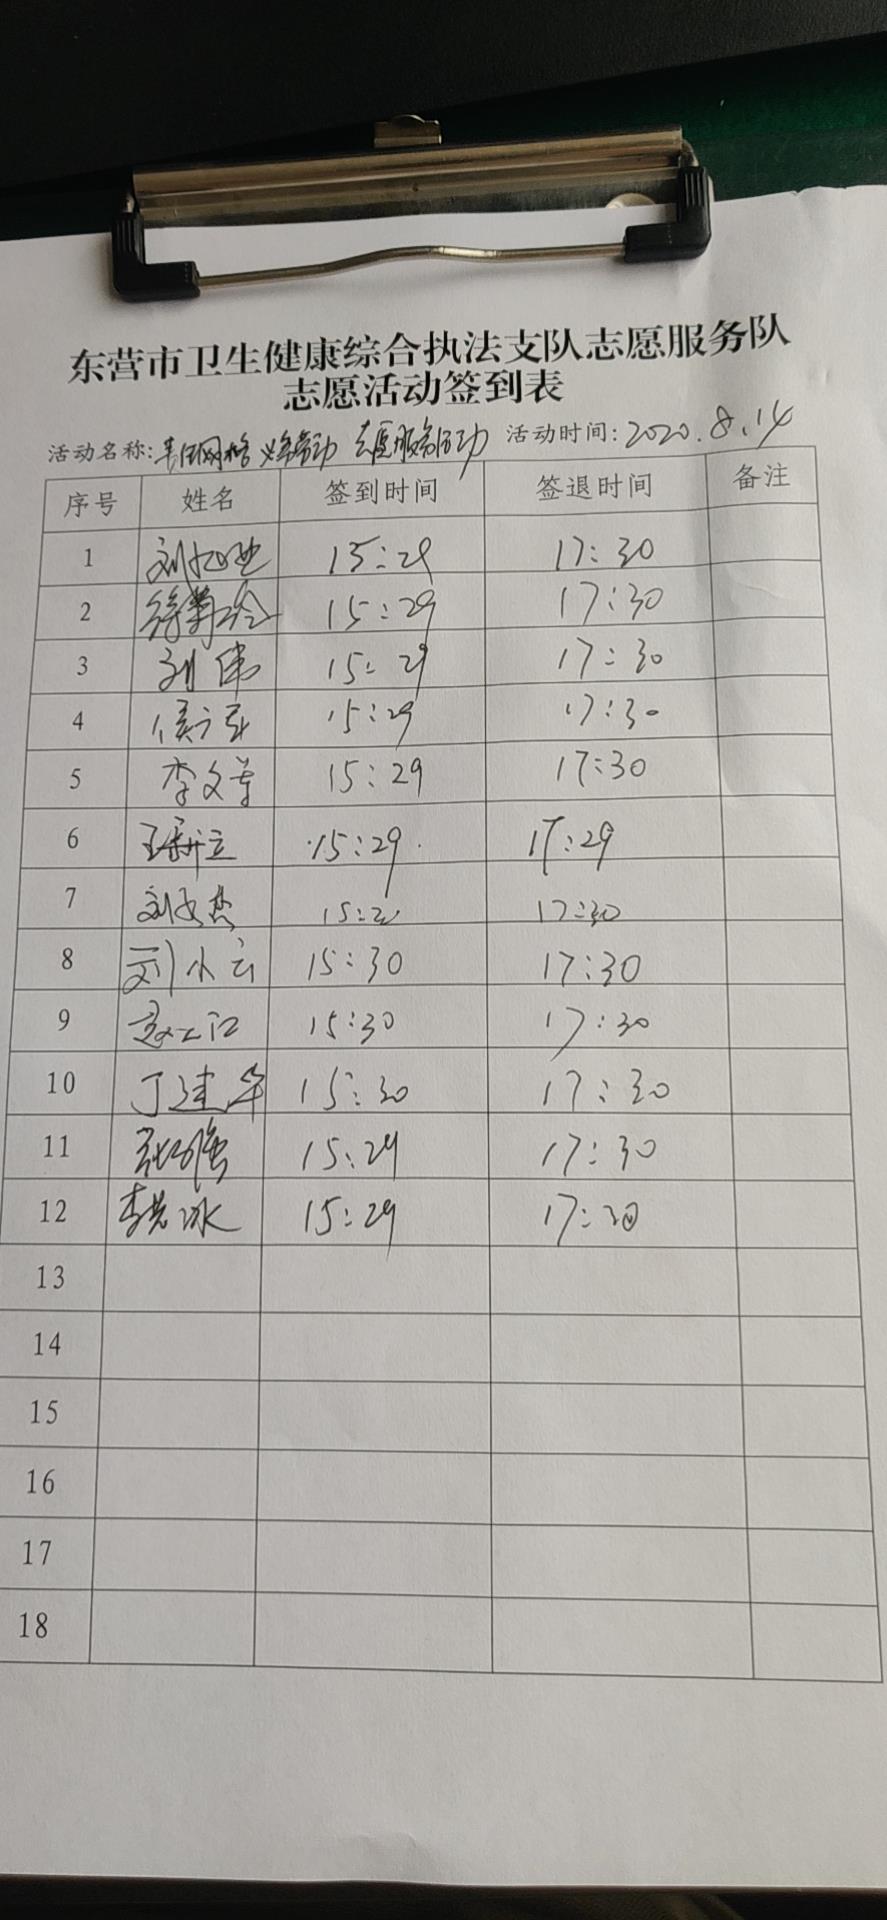 东营市卫生健康综合执法支队志愿服务队
志愿活动签到表
活动名称: 网格 义务劳动 志愿服务活动 活动时间: 2020.8.14
序号 姓名 签到时间 签退时间 备注
1 刘 15:29 17:30
2 徐菊玲 15:29 17:30
3 刘伟 15:29 17:30
4 侯 15:29 17:30
5 李文 15:29 17:30
6 王新立 15:29 17:29
7 刘文杰 17:30
8 刘小云 15:30 17:30
9 15:30 17:30
10 丁建华 15:30 17:30
11 张 15:29 17:30
12 李 冰 15:29 17:30
13
14
15
16
17
18